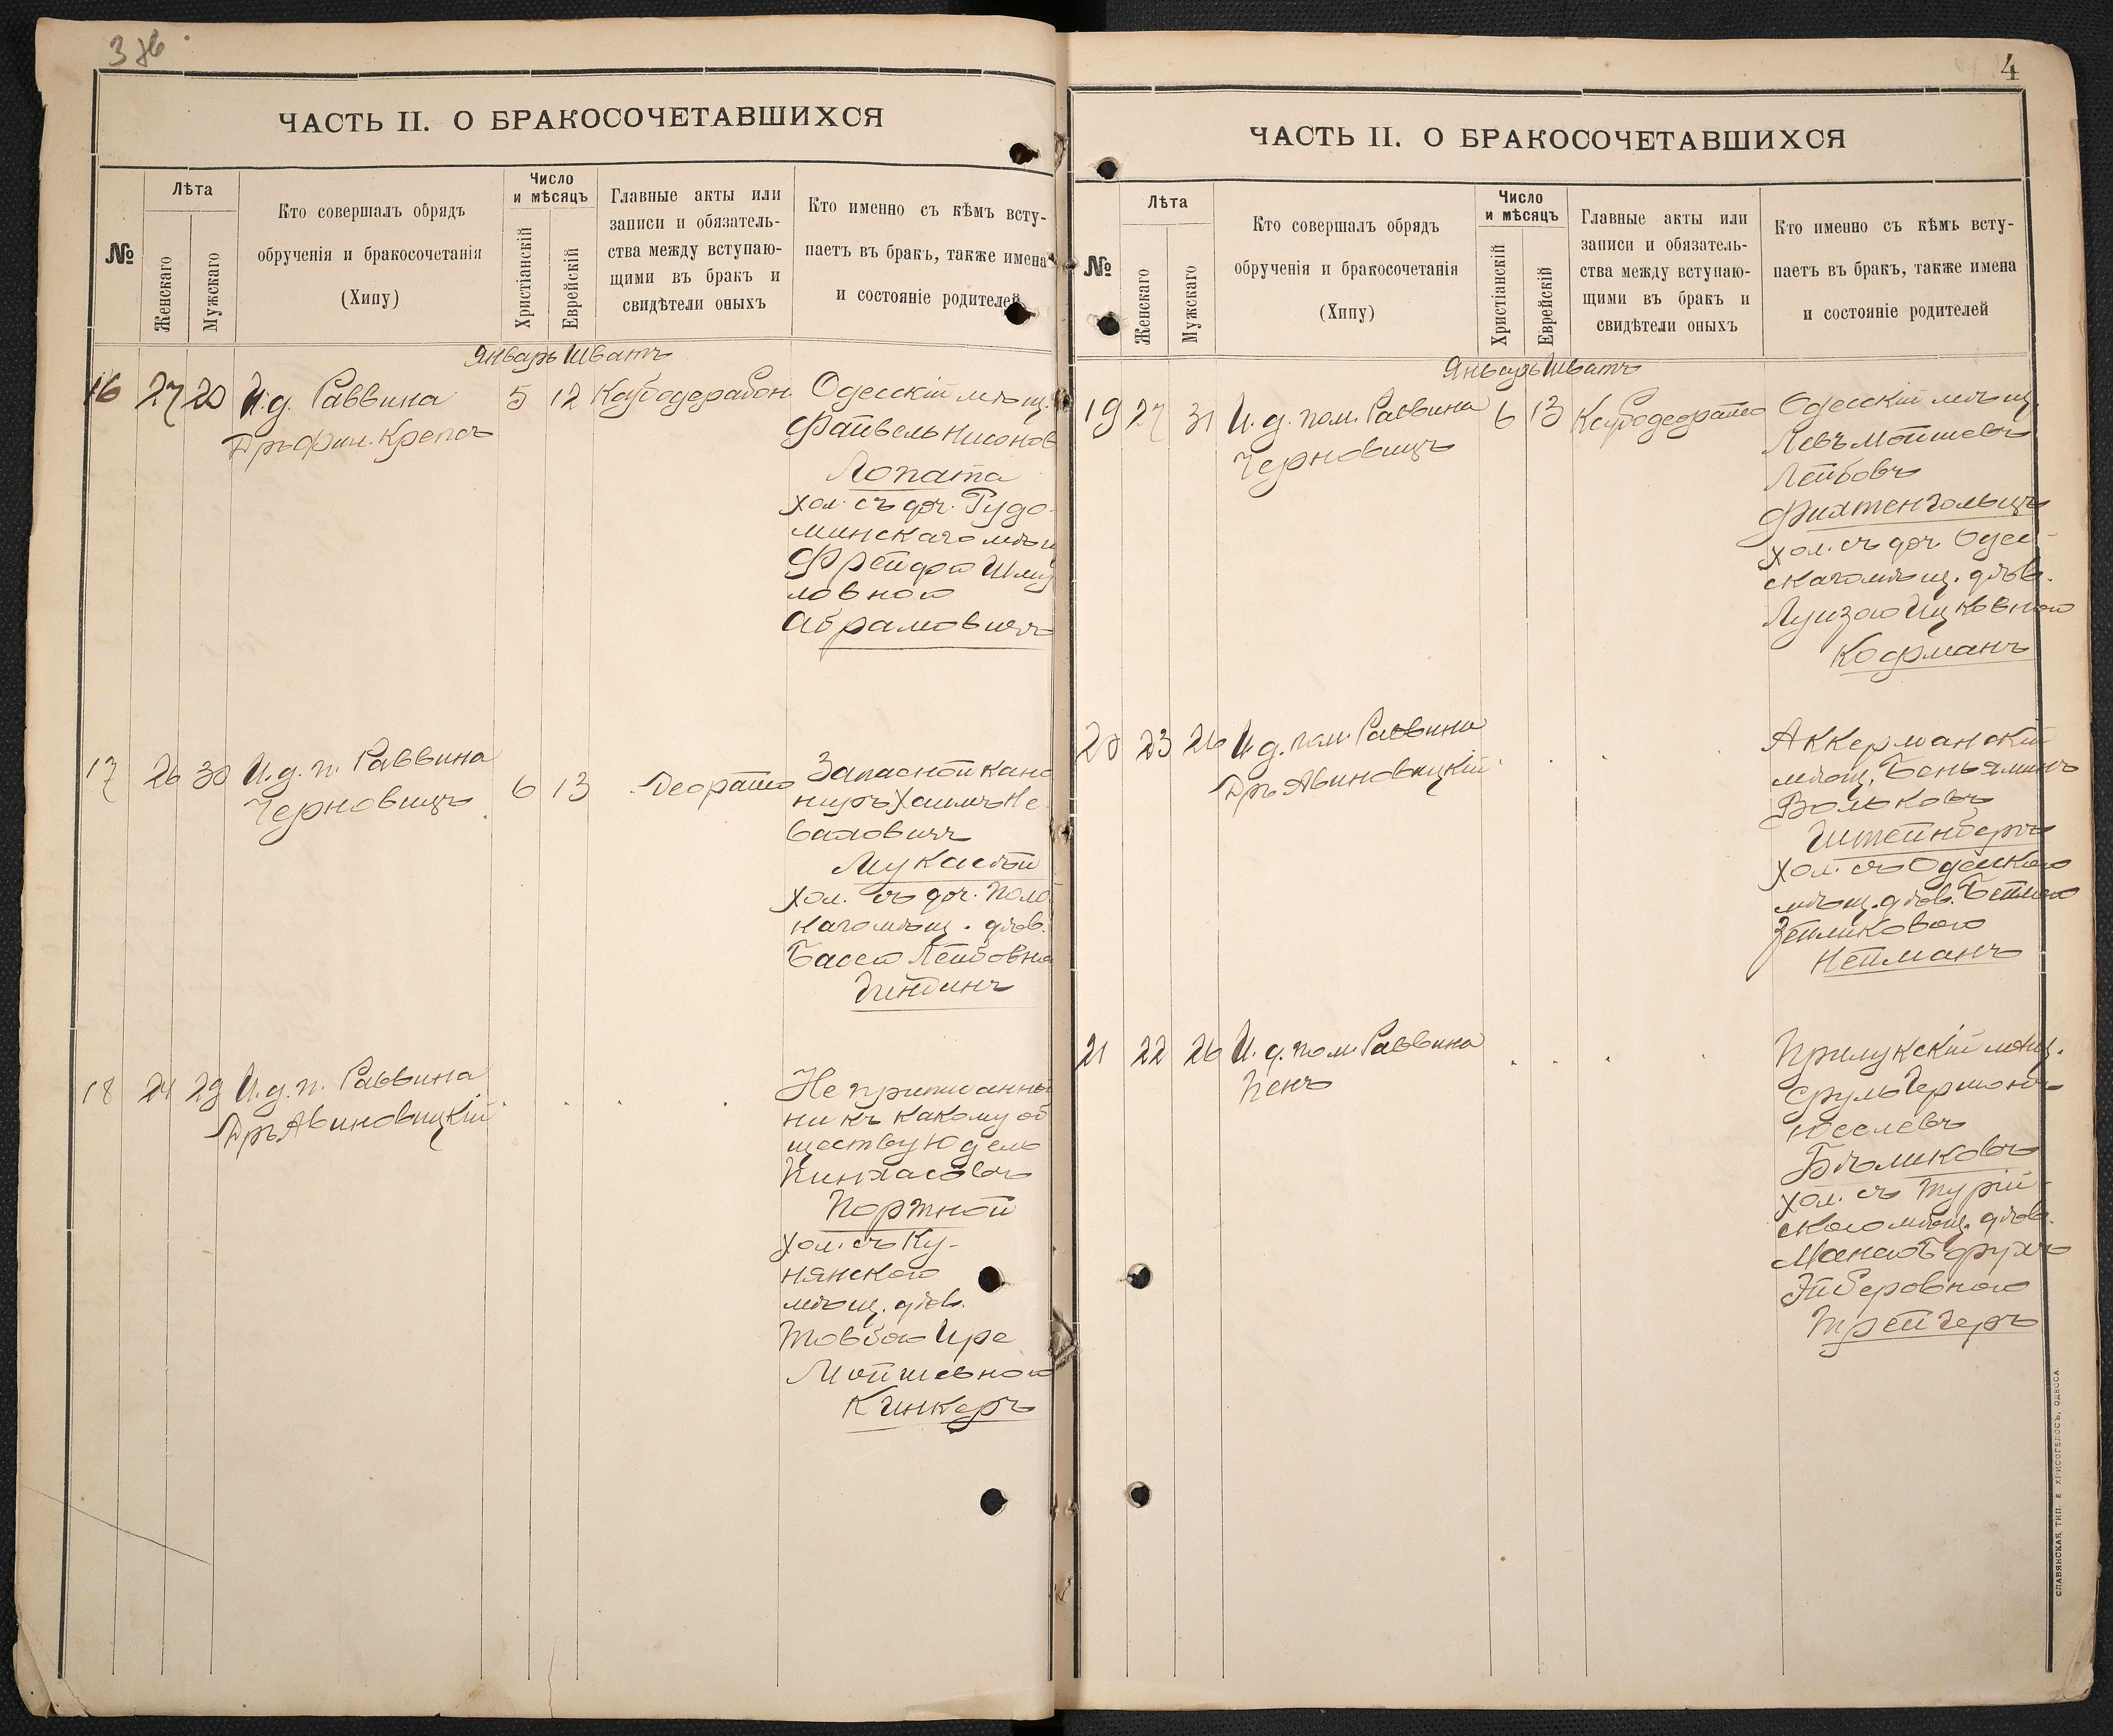 3 об
ЧАСТЬ II. О БРАКОСОЧЕТАВШИХСЯ
№
Лѣта
Женскаго
Мужскаго
Кто совершалъ обрядъ
обрученія и бракосочетанія
(Хипу)
Число
и мѣсяцъ
Христіанскій
Еврейскій
Главные акты или
записи и обязатель-
ства между вступаю-
щими въ бракъ и
свидѣтели оныхъ
Кто именно съ кѣмъ всту-
паетъ въ бракъ, также имена
и состояніе родителей
Январь Шватъ
16 27 20 И.д. Раввина 5 12 Одесскій мѣщ.
Файвель Нисонов
Лопата
хол. съ доч. Рудо-
минскаго мѣщ
Фрейдою Шму
ловною
Абрамовичъ
17 26 30 И.д. п. Раввина
Черновицъ 6 13
Запасной кано
ниръ Хаимъ Не
ваховичъ
Мукасѣй
хол. съ доч. Поло
каго мѣщ. дѣв.
Басею Лейбовно
Диндинъ
18 24 29 И.д. п. Раввина
Дръ Авиновицкій
Не приписанны
ни къ какому об
ществу Юдель
Пинхасовъ
Портной
хол. съ Ку-
нянскаго
мѣщ. дѣв.
Товбою Ире
Мойшевною
Кинкеръ
4
ЧАСТЬ II. О БРАКОСОЧЕТАВШИХСЯ
№
Лѣта
Женскаго
Мужскаго
Кто совершалъ обрядъ
обрученія и бракосочетанія
(Хипу)
Число
и мѣсяцъ
Христіанскій
Еврейскій
Главные акты или
записи и обязатель-
ства между вступаю-
щими въ бракъ и
свидѣтели оныхъ
Кто именно съ кѣмъ всту-
паетъ въ бракъ, также имена
и состояніе родителей
Январь Шватъ
19 27 31 И.д. пом. Раввина 6 13 Одесскій мѣщ
Черновицъ
Левъ Мойшевъ
Лейбовъ
Фихтенгольцъ
хол. съ доч. Одес-
скаго мѣщ. дѣв.
Луизою Ицковною
Кофманъ
20 23 26 И.д. пом. Раввина
Дръ Авиновицкій
Аккерманскій
мѣщ. Беньяминъ
Вольковъ
Штейнбергъ
хол. съ Одесскаго
мѣщ. дѣв. Бейлею
Зейликовою
Нейманъ
21 22 26 И.д. пом. Раввина
Пенъ
Прилукскій мѣщ.
Сруль Гершонъ
Юселевъ
Бѣликовъ
хол. съ Турій-
скаго мѣщ. дѣв.
Манею Брухъ
Эйберовною
Трейгеръ
СЛАВЯНСКАЯ ТИП. Е. ХРИСОГЕЛОСЪ, ОДЕССА